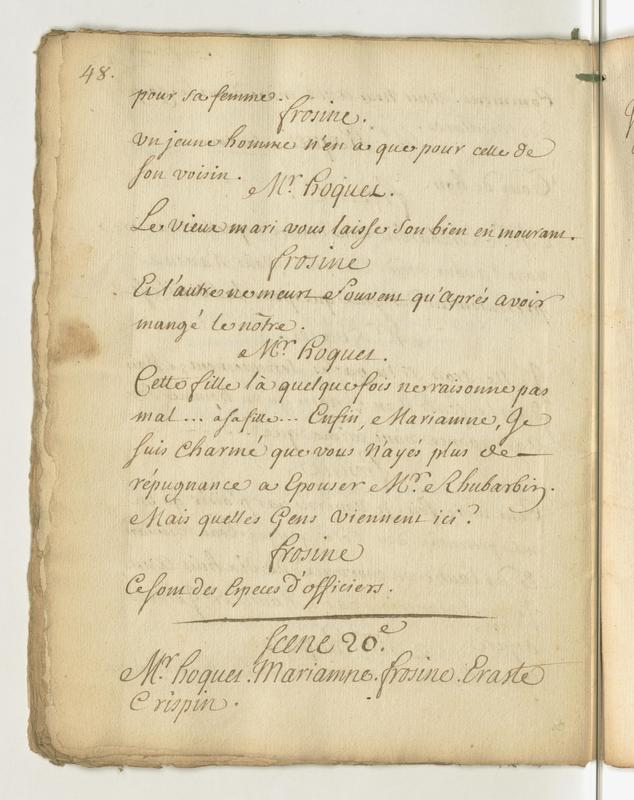 48.
pour sa femme.
frosine.
Un jeune homme n'en a que pour celle de
son voisin.
Mr. hoquet.
Le vieux mari vous laisse son bien en mourant.
frosine
Et l'autre ne meurt souvent qu'aprés avoir
mangé le nôtre.
Mr. hoquet.
Cette fille là quelquefois ne raisonne pas
mal... à sa fille... Enfin, Mariamne, Je
suis charmé que vous n'ayés plus de
répugnance a Epouser Mr. Rhubarbin.
Mais quelles Gens viennent ici ?
frosine
Ce sont des Especes d'officiers.
Scene 20e.
Mr. hoquet. Mariamne. frosine. Eraste
Crispin.